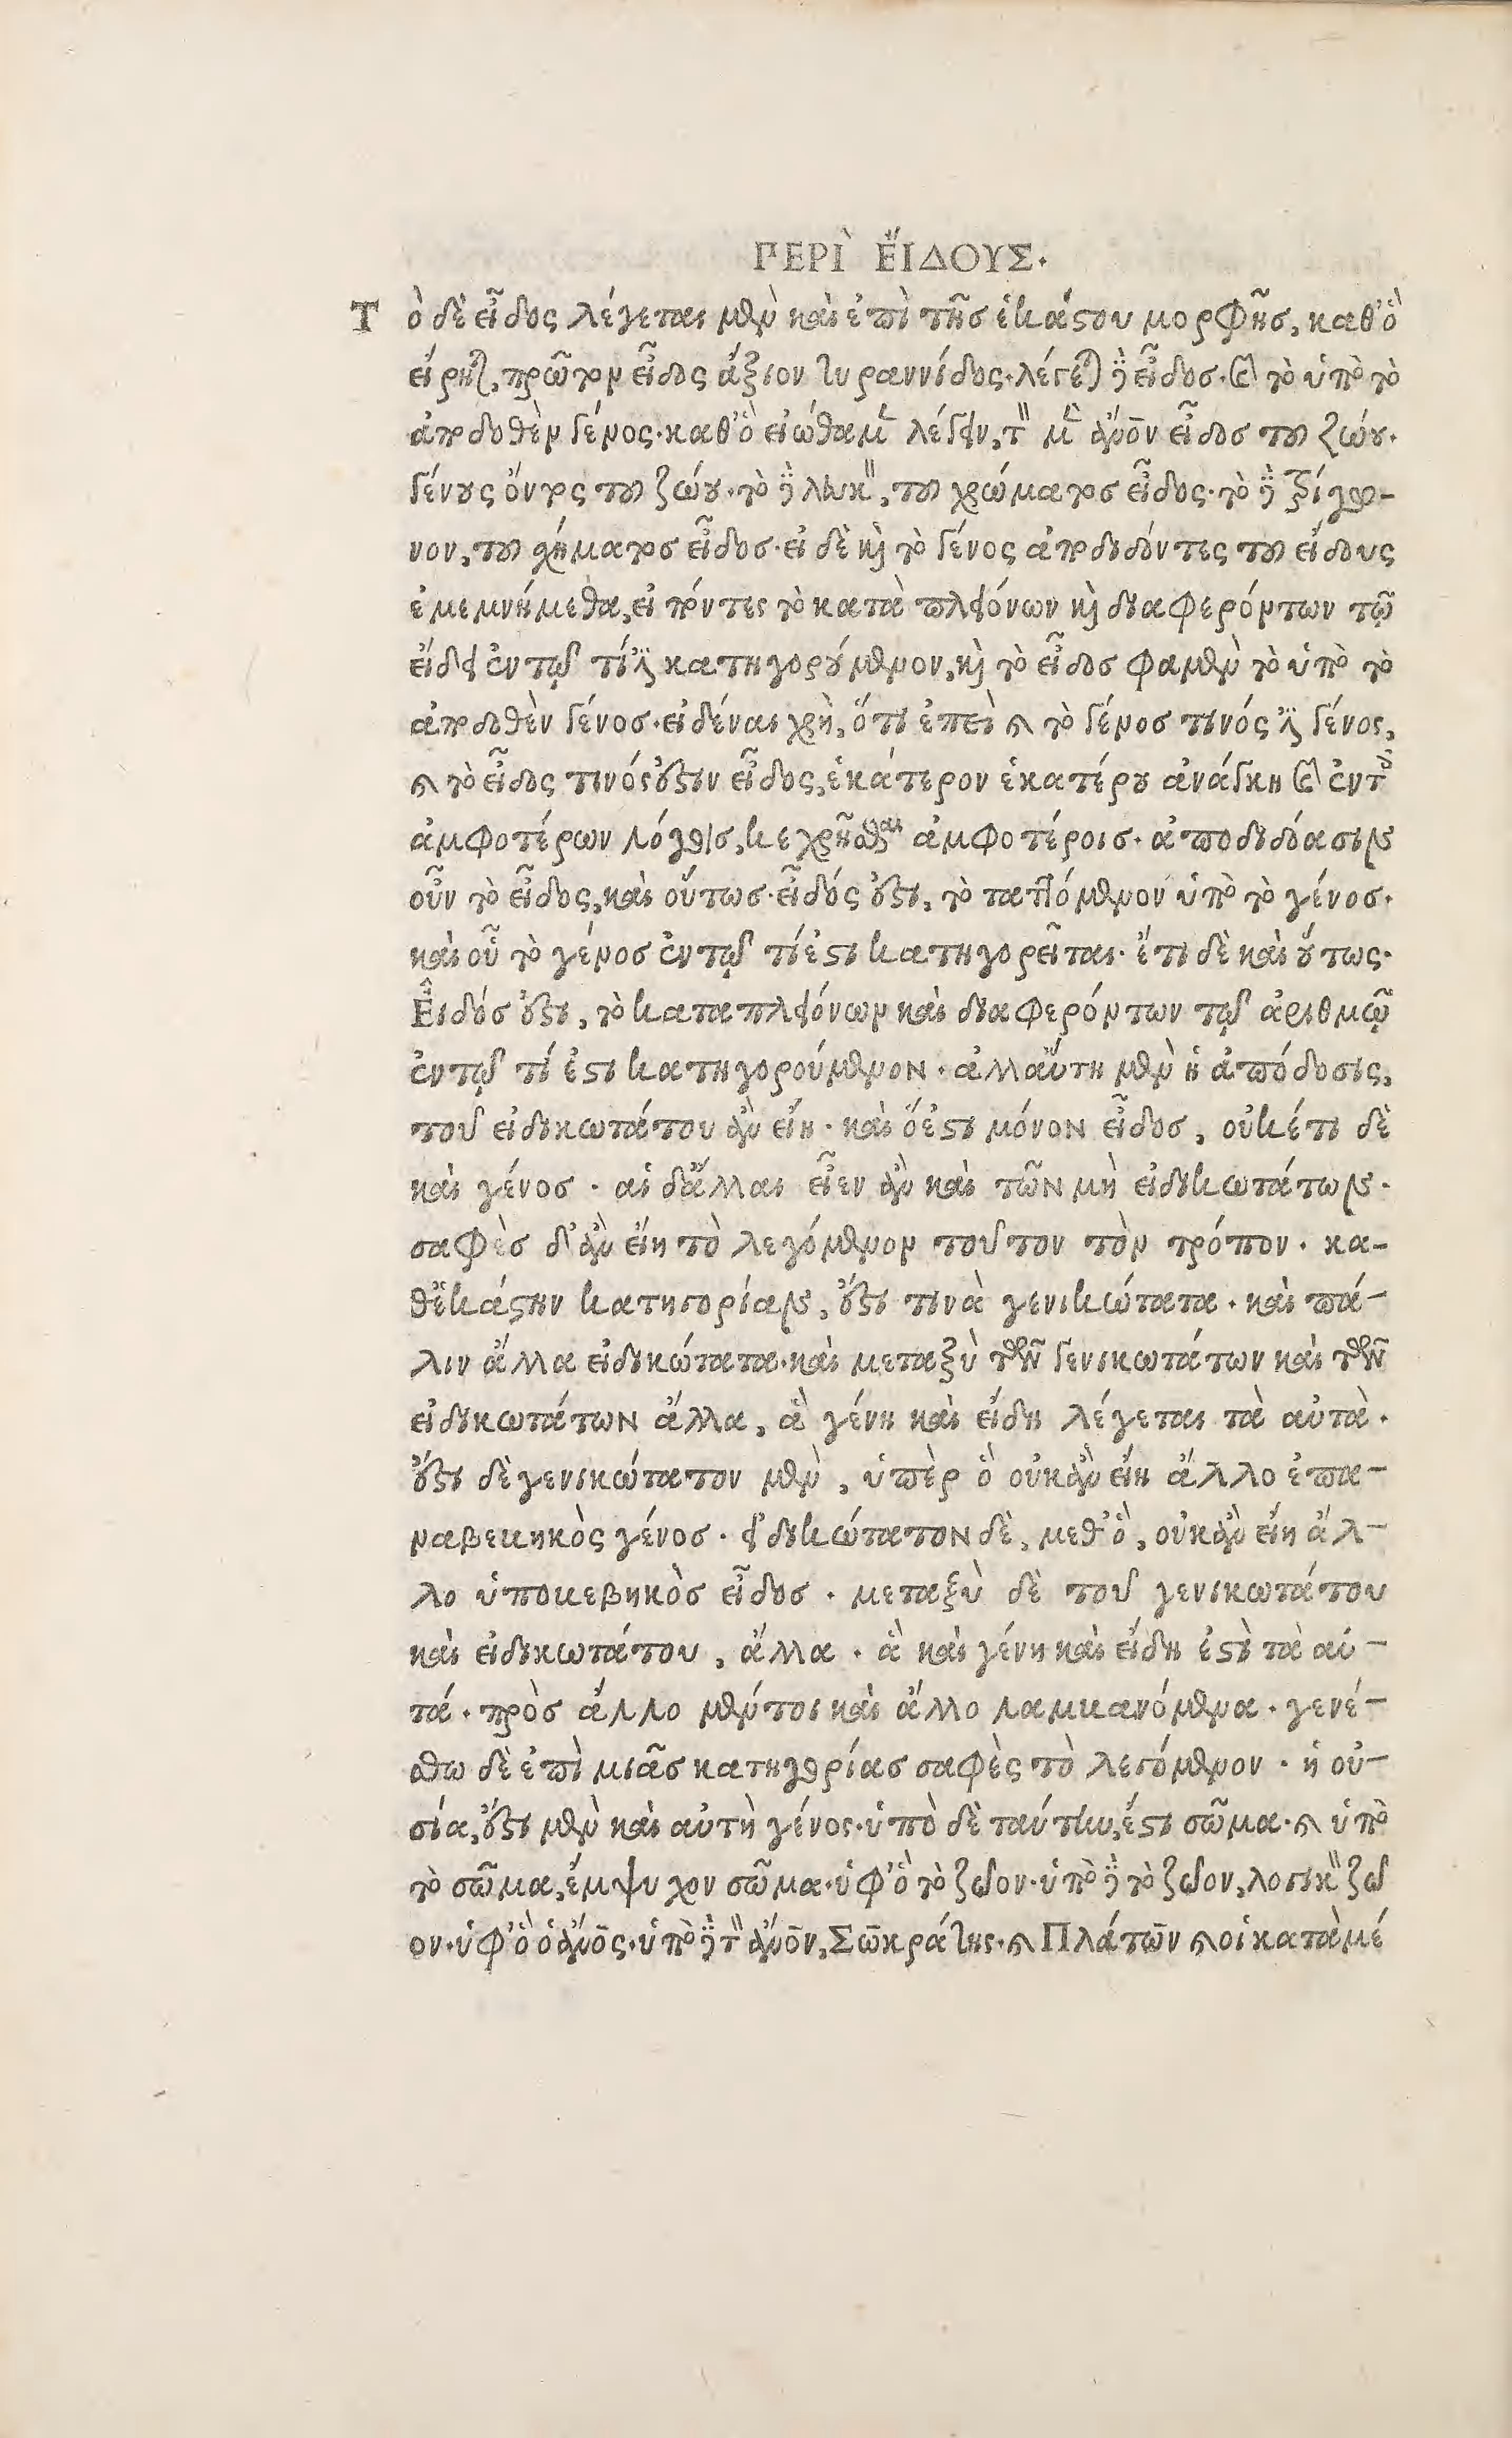 ΠΕΡῚ ἜΙΔΟΥΣ.
Τὸ δὲ εἶδος λέγεται μὲν καὶ ἐπὶ τῆς ἑκάστου μορφῆς, καθ' ὃ
εἴρηται, πρῶτον εἶδος ἄξιον τυραννίδος. λέγεται δὲ εἶδος. καὶ τὸ ὑπὸ τὸ
ἀποδοθὲν γένος. καθ' ὃ εἰώθαμεν λέγειν, τὸν μὲν ἄνθρωπον εἶδος τοῦ ζώου.
γένους ὄντος τοῦ ζώου. τὸ δὲ λευκὸν, τοῦ χρώματος εἶδος. τὸ δὲ τρίγω-
νον, τοῦ σχήματος εἶδος. εἰ δὲ καὶ τὸ γένος ἀποδιδόντες τοῦ εἴδους
ἐμεμνήμεθα, εἰπόντες τὸ κατὰ πλειόνων καὶ διαφερόντων τῷ
εἴδει ἐν τῷ τί ἐστι κατηγορούμενον, καὶ τὸ εἶδος φαμὲν τὸ ὑπὸ τὸ
ἀποδοθὲν γένος. εἰδέναι χρὴ, ὅτι ἐπεὶ καὶ τὸ γένος τινός ἐστι γένος,
καὶ τὸ εἶδος τινός ἐστιν εἶδος, ἑκάτερον ἑκατέρου ἀνάγκη καὶ ἐν τοῖς
ἀμφοτέρων λόγοις, κεχρῆσθαι ἀμφοτέροις. ἀποδιδόασιν
οὖν τὸ εἶδος, καὶ οὕτως. εἶδός ἐστι, τὸ ταττόμενον ὑπὸ τὸ γένος.
καὶ οὗ τὸ γένος ἐν τῷ τί ἐστι κατηγορεῖται. ἔτι δὲ καὶ οὕτως.
Εἶδός ἐστι, τὸ κατὰ πλειόνων καὶ διαφερόντων τῷ ἀριθμῷ
ἐν τῷ τί ἐστι κατηγορούμενον. ἀλλ' αὕτη μὲν ἡ ἀπόδοσις,
τοῦ εἰδικωτάτου ἂν εἴη. καὶ ὅ ἐστι μόνον εἶδος, οὐκέτι δὲ
καὶ γένος. αἱ δ' ἄλλαι εἶεν ἂν καὶ τῶν μὴ εἰδικωτάτων.
σαφὲς δ' ἂν εἴη τὸ λεγόμενον τοῦτον τὸν τρόπον. κα-
θ' ἑκάστην κατηγορίαν, ἔστι τινὰ γενικώτατα. καὶ πά-
λιν ἄλλα εἰδικώτατα. καὶ μεταξὺ τῶν γενικωτάτων καὶ τῶν
εἰδικωτάτων ἄλλα, ἃ γένη καὶ εἴδη λέγεται τὰ αὐτὰ.
ἔστι δὲ γενικώτατον μὲν, ὑπὲρ ὃ οὐκ ἂν εἴη ἄλλο ἐπα-
ναβεβηκὸς γένος. εἰδικώτατον δὲ, μεθ' ὃ, οὐκ ἂν εἴη ἄλ-
λο ὑποβεβηκὸς εἶδος. μεταξὺ δὲ τοῦ γενικωτάτου
καὶ εἰδικωτάτου, ἄλλα. ἃ καὶ γένη καὶ εἴδη ἐστὶ τὰ αὐ-
τά. πρὸς ἄλλο μέντοι καὶ ἄλλο λαμβανόμενα. γενέ-
σθω δὲ ἐπὶ μιᾶς κατηγορίας σαφὲς τὸ λεγόμενον. ἡ οὐ-
σία, ἔστι μὲν καὶ αὐτὴ γένος. ὑπὸ δὲ ταύτην, ἔστι σῶμα. καὶ ὑπὸ
τὸ σῶμα, ἔμψυχον σῶμα. ὑφ' ὃ τὸ ζῶον. ὑπὸ δὲ τὸ ζῶον, λογικὸν ζῶ
ον. ὑφ' ὃ ὁ ἄνθρωπος. ὑπὸ δὲ τὸν ἄνθρωπον, Σωκράτης. καὶ Πλάτων καὶ οἱ κατὰ μέ